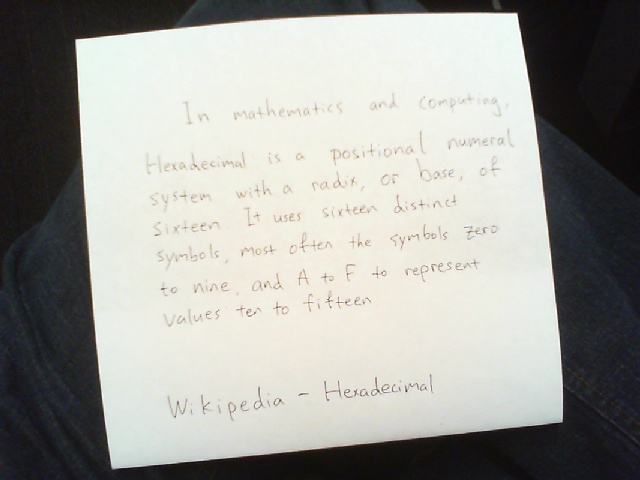 In mathematics and computing,
Hexadecimal is a positional numeral
system with a radix, or base, of
sixteen. It uses sixteen distinct
symbols, most often the symbols zero
to nine, and A to F to represent
values ten to fifteen
Wikipedia - Hexadecimal